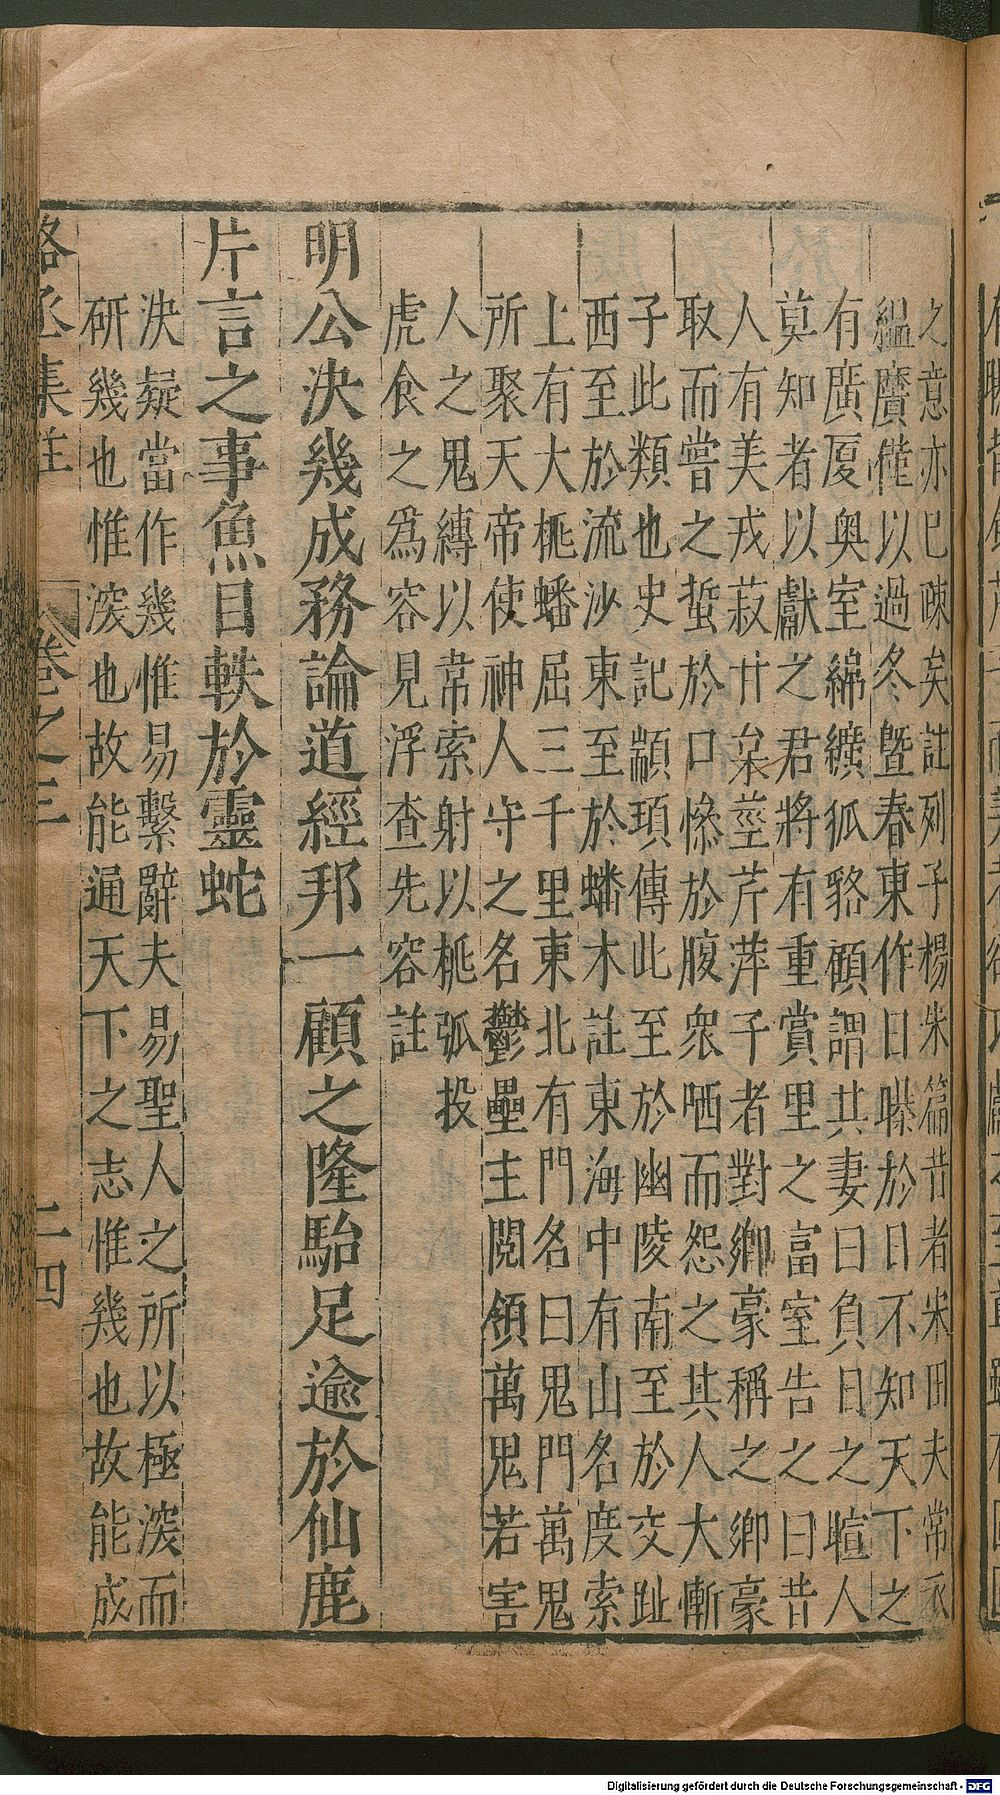 之意亦已疎矣註列子楊朱篇昔者宋田夫常衣
縕黂僅以過冬曁春東作日㬥於日不知天下之
有廣厦奥室綿纊狐貉顧謂其妻曰負日之暄人
莫知者以獻之君將有重賞里之富室告之曰昔
人有美戎菽甘枲莖芹萍子者對鄉豪稱之鄉豪
取而嘗之蜇於口慘於腹衆哂而怨之其人大慚
子此類也史記顓頊傳此至於幽陵南至於交趾
西至於流沙東至於蟠木註東海中有山名度索
上有大桃蟠屈三千里東北有門名曰鬼門萬鬼
所聚天帝使神人守之名鬱壘主閲領萬鬼若害
人之鬼縛以常索射以桃弧投
虎食之爲容見浮查先容註
明公決幾成務論道經邦一顧之隆駘足逾於仙鹿
片言之事魚目軼於靈蛇
決疑當作幾惟易繫辭夫易聖人之所以極深而
研幾也惟深也故能通天下之志惟幾也故能成
駱丞集註 卷之三 二四
Digitalisierung gefördert durch die Deutsche Forschungsgemeinschaft - DFG